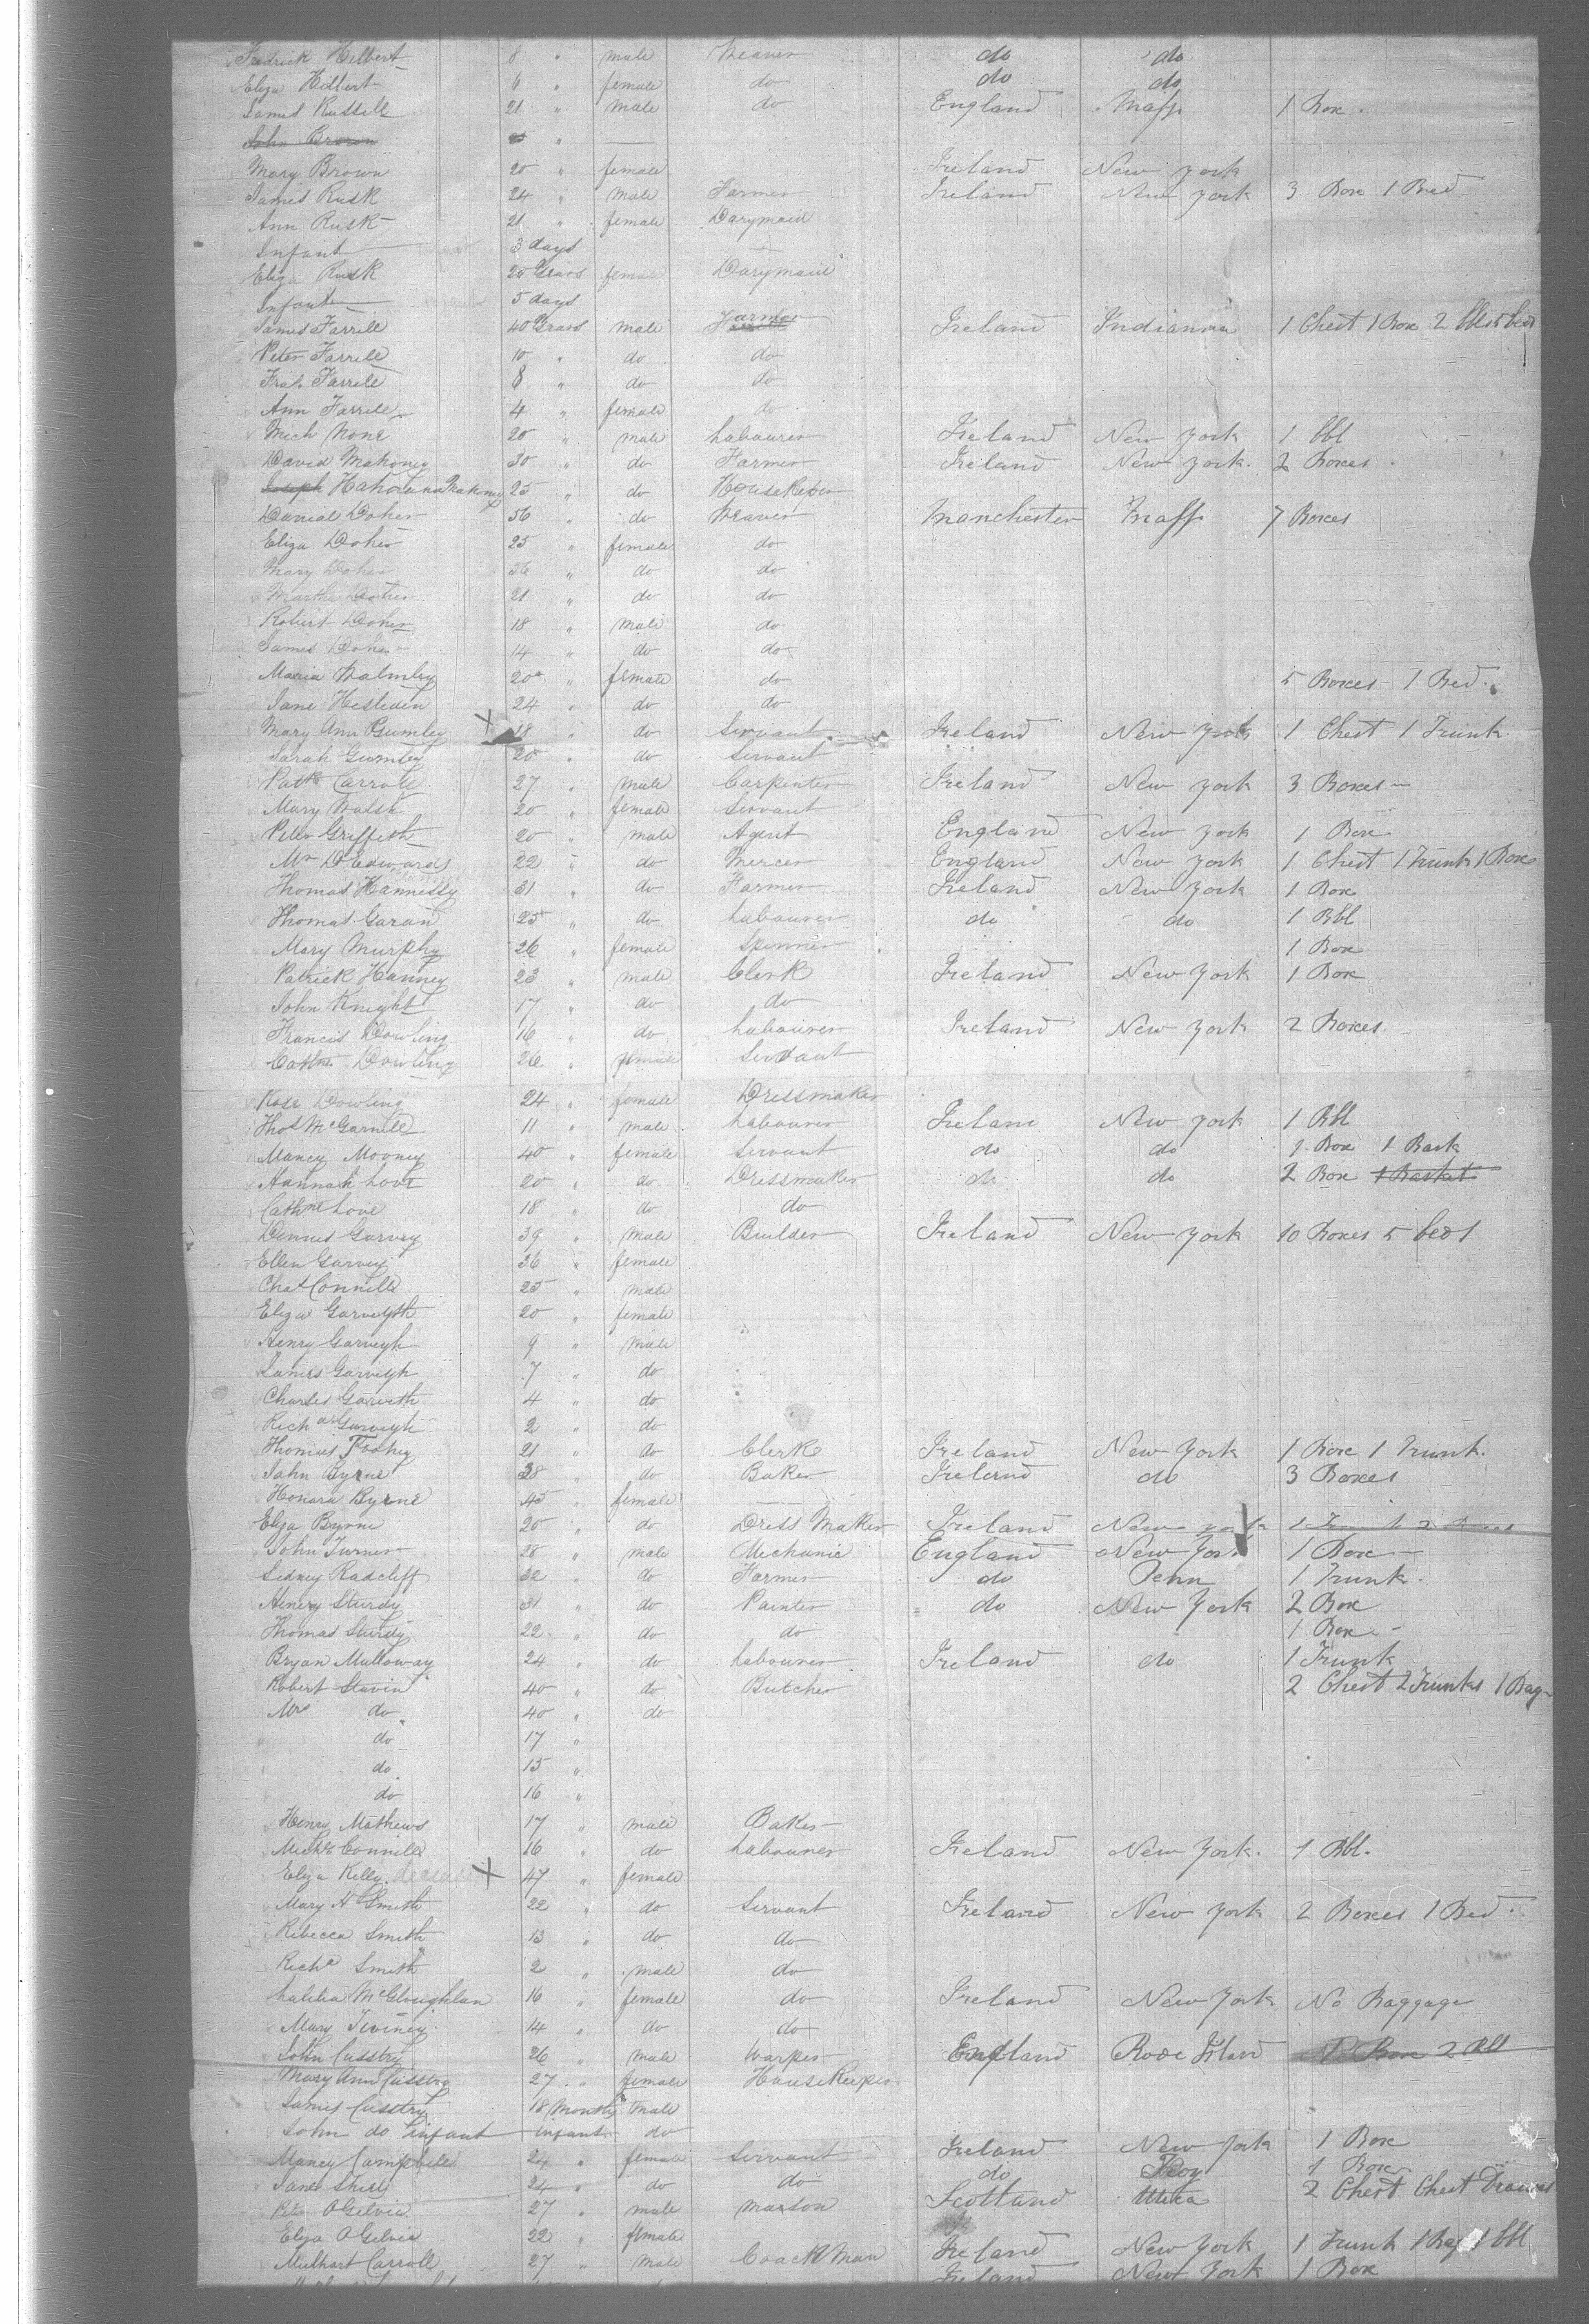 Fredrick Hilbert 8 " male Weaver do do
Eliza Hilbert 6 " female do do do
James Russill 21 " male do England Mass 1 Box
John Brown "
Mary Brown 20 " female Ireland New York
James Rusk 24 " male Farmer Ireland New York 3 Box 1 Bed
Ann Rusk 21 " female Darymaid
Infant 3 days
Eliza Rusk 20 Years female Darymaid
Infant 5 days
James Farrell 40 Years male Farmer Ireland Indianna 1 Chest 1 Box 2 bbls
Peter Farrell 10 " do do
Farrell 8 " do do
Ann Farrell 4 " female do
Mich None 20 " male Labourer Ireland New York 1 bbl
David Mahoney 30 " do Farmer Ireland New York 2 Boxes
Joseph Mahoney 25 " do HouseKeper
Danial Doher 56 " do Weaver Manchester Mass 7 Boxes
Eliza Doher 25 " female do
Mary Doher 36 " do do
Martha Doher 21 " do do
Robert Doher 18 " male do
James Doher 14 " do do
Maria Walmley 20 " female do 5 Boxes 1 Bed
Jane Hesleden 24 " do do
Mary Ann Gumley X 18 " do Servant Ireland New York 1 Chest 1 Trunk
Sarah Gumley 20 " do Servant
Patk Carroll 27 " male Carpenter Ireland New York 3 Boxes
Mary Walsh 20 " female Servant
Peter Griffith 20 " male Agent England New York 1 Box
Mr D Edwards 22 " do Mercer England New York 1 Chest 1 Trunk 1 Box
Thomas Hannessy 31 " do Farmer Ireland New York 1 Box
Thomas Garan 25 " do Labourer do do 1 Bbl
Mary Murphy 26 " female Spinner 1 Box
Patrick Hanney 23 " male Clerk Ireland New York 1 Box
John Knight 17 " do do
Francis Dowling 16 " do Labourer Ireland New York 2 Boxes
Cathne Dowling 26 " female Servant
Rose Dowling 24 " female Dressmaker
Thos McGarrell 11 " male Labourer Ireland New York 1 Bbl
Nancy Mooney 40 " female Servant do do 1 Box 1 Bask
Hannah Love 20 " do Dressmaker do do 2 Box 1 Basket
Cathne Love 18 " do do
Dennis Garvey 39 " male Builder Ireland New York 10 Boxes 5 beds
Ellen Garvey 36 " female
Chas Connell 25 " male
Eliza Garveyth 20 " female
Henry Garveyh 9 " male
James Garveyh 7 " do
Charles Garveth 4 " do
Richd Garveyh 2 " do
Thomas Toohey 21 " do Clerk Ireland New York 1 Box 1 Trunk
John Byrne 38 " do Baker Ireland do 3 Boxes
Honara Byrne 45 " female
Eliza Byrne 20 " do Dress Maker Ireland New York
John Turner 28 " male Mechanic England New York 1 Box
Sidney Radcliff 32 " do Farmer do Penn 1 Trunk
Henry Sturdy 31 " do Painter do New York 2 Box
Thomas Sturdy 22 " do do 1 Box
Bryan Mulloway 24 " do Labourer Ireland do 1 Trunk
Robert Slavin 40 " do Butcher 2 Chest 2 Trunks 1 Bag
Mrs do 40 " do
do 17 "
do 15 "
do 16 "
Henry Mathews 17 " male Baker
Michl Connell 16 " do Labourer Ireland New York 1 Bbl
Eliza Kelly X 47 " female
Mary H Smith 22 " do Servant Ireland New York 2 Boxes 1 Bed
Rebecca Smith 13 " do do
Richd Smith 2 " male do
McCloughlan 16 " female do Ireland New York No Baggage
Mary Tiviney 14 " do do
John Casstry 26 " male Warper England Rode Island 2 Bbl
Mary Ann Casstry 27 " female HouseKeeper
James Casstry 18 Months male
John do infant infant do
Nancy Campbell 24 " female Servant Ireland New York 1 Box
Jane 24 " do do do Troy 1 Box
OGilvie 27 " male masson Scotland Utica 2 Chest Chest Drawes
Eliza OGilvie 22 " female
Carroll 27 " male Coach Man Ireland New York 1 Trunk 1 Bag 1 bbl
Ireland New York 1 Box